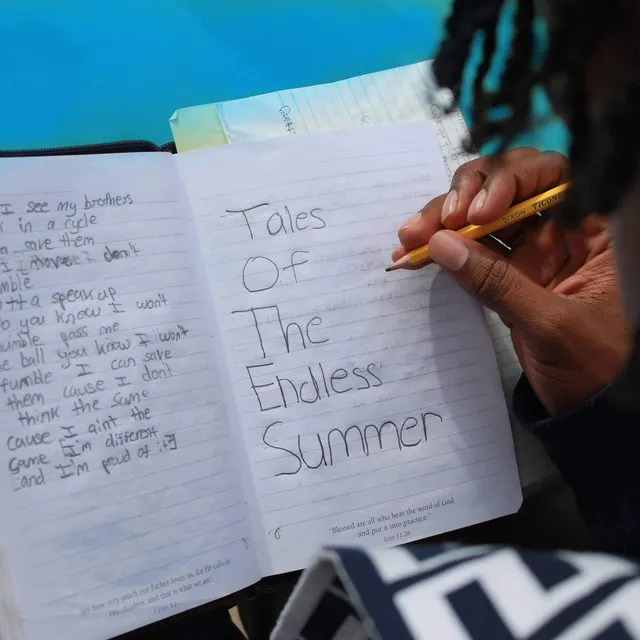 I see my brothers
in a cycle
save them
I don't
mble
a speak up
you know I won't
umble pass me
e ball you know I won't
fumble I can save
them cause I don't
think the same
cause I ain't the
same I'm different
and I'm proud of it
how very much our Father loves us, for He calls us
His children, and that is what we are!
Tales
Of
The
Endless
Summer
"Blessed are all who hear the word of God
and put it into practice."
Luke 11:28
DIXON TICONDE